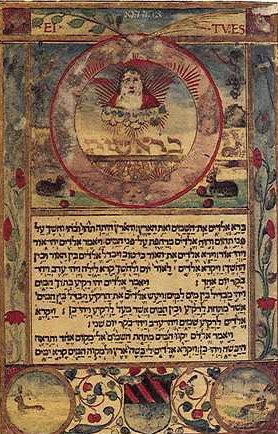 EI TVES
בראשית
ברא אלדים את השמים ואת הארץ והארץ היתה תהו ובהו וחשך על
פני תהום ורוח אלדים מרחפת על פני המים ויאמר אלדים יהי אור
ויהי אור וירא אלדים את האור כי טוב ויבדל אלדים בין האור ובין
החשך ויקרא אלדים לאור יום ולחשך קרא לילה ויהי ערב ויהי
בקר יום אחד ויאמר אלדים יהי רקיע בתוך המים
ויהי מבדיל בין מים למים ויעש אלדים את הרקיע ויבדל בין המים
אשר מתחת לרקיע ובין המים אשר מעל לרקיע ויהי כן ויקרא
אלדים לרקיע שמים ויהי ערב ויהי בקר יום שני
ויאמר אלדים יקוו המים מתחת השמים אל מקום אחד ותראה
היבשה ויהי כן ויקרא אלדים ליבשה ארץ ולמקוה המים קרא ימים